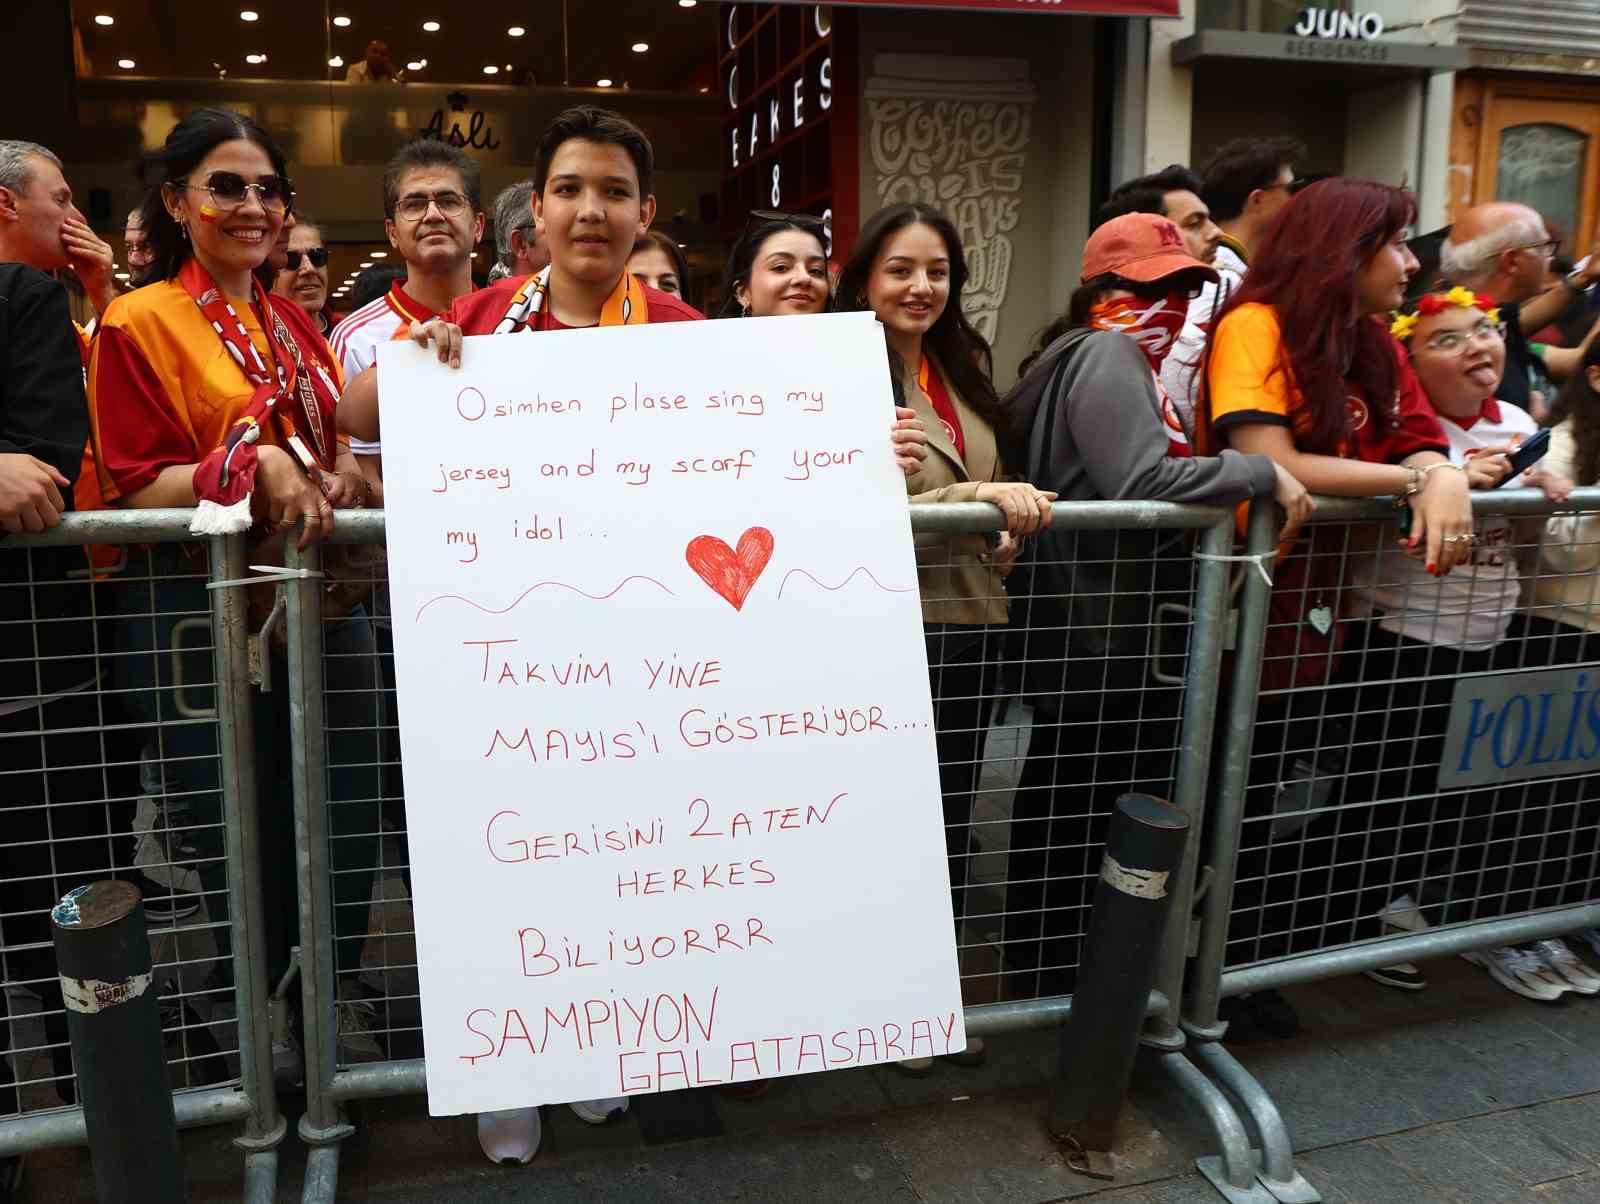 JUNO
RESIDENCES
Aslı
CAKES
8
COFFEE
IS
Osimhen plase sing my
jersey and my scarf your
my idol...
TAKVİM YİNE
MAYIS'I GÖSTERİYOR....
GERİSİNİ 2 ATEN
HERKES
BİLİYORRR
ŞAMPİYON
GALATASARAY
POLİS